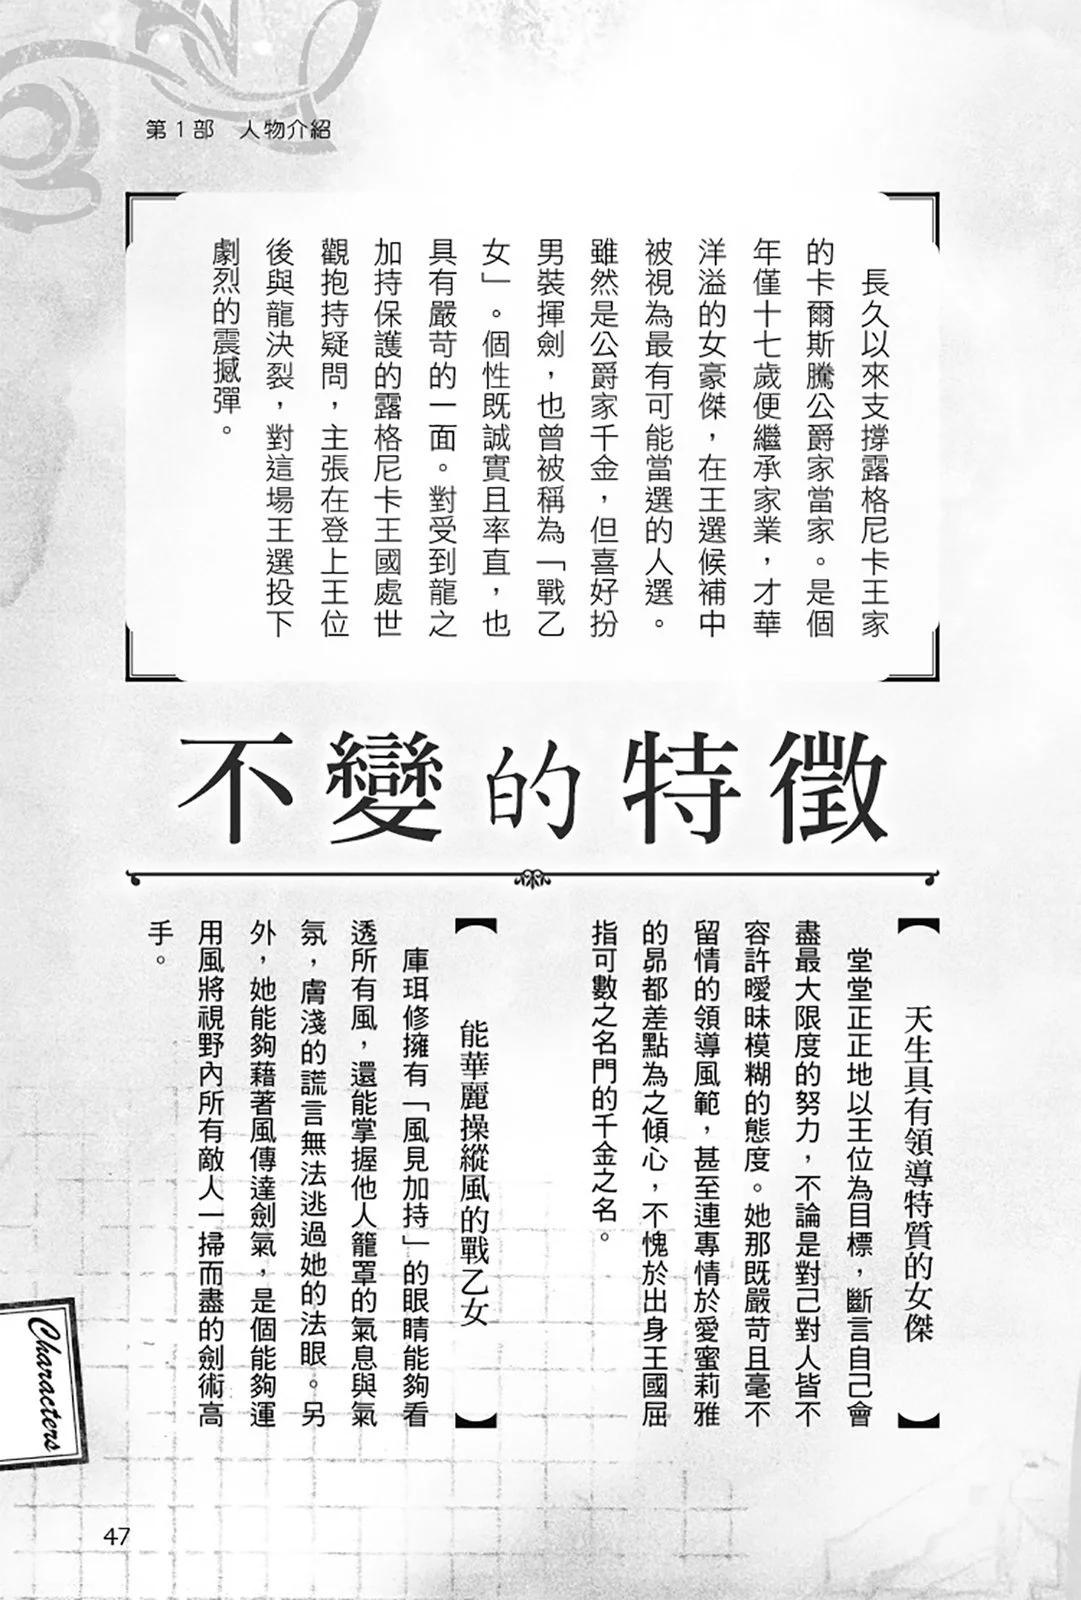 第1部　人物介紹
長久以來支撐露格尼卡王家
的卡爾斯騰公爵家當家。是個
年僅十七歲便繼承家業，才華
洋溢的女豪傑，在王選候補中
被視為最有可能當選的人選。
雖然是公爵家千金，但喜好扮
男裝揮劍，也曾被稱為「戰乙
女」。個性既誠實且率直，也
具有嚴苛的一面。對受到龍之
加持保護的露格尼卡王國處世
觀抱持疑問，主張在登上王位
後與龍決裂，對這場王選投下
劇烈的震撼彈。
不變的特徵
【天生具有領導特質的女傑】
堂堂正正地以王位為目標，斷言自己會
盡最大限度的努力，不論是對己對人皆不
容許曖昧模糊的態度。她那既嚴苛且毫不
留情的領導風範，甚至連專情於愛蜜莉雅
的昴都差點為之傾心，不愧於出身王國屈
指可數之名門的千金之名。
【能華麗操縱風的戰乙女】
庫珥修擁有「風見加持」的眼睛能夠看
透所有風，還能掌握他人籠罩的氣息與氣
氛，膚淺的謊言無法逃過她的法眼。另
外，她能夠藉著風傳達劍氣，是個能夠運
用風將視野內所有敵人一掃而盡的劍術高
手。
Characters
47